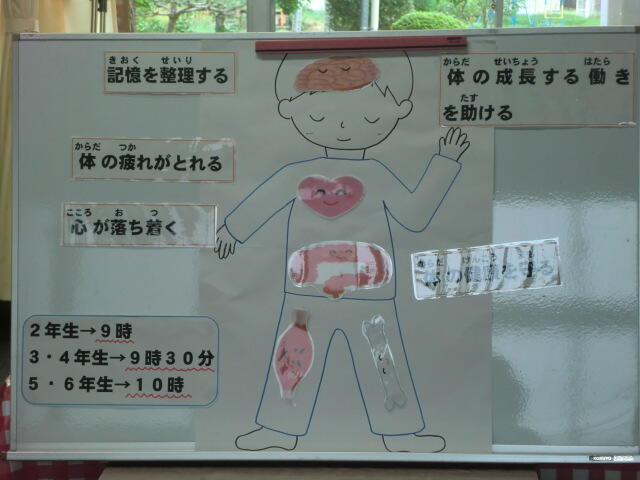 きおく せいり
記憶を整理する
からだ せいちょう はたら
体の成長する働き
たす
を助ける
からだ つか
体の疲れがとれる
こころ お つ
心が落ち着く
からだ けんこう
体の健康を守る
2年生→9時
3・4年生→9時30分
5・6年生→10時
KOKUYO